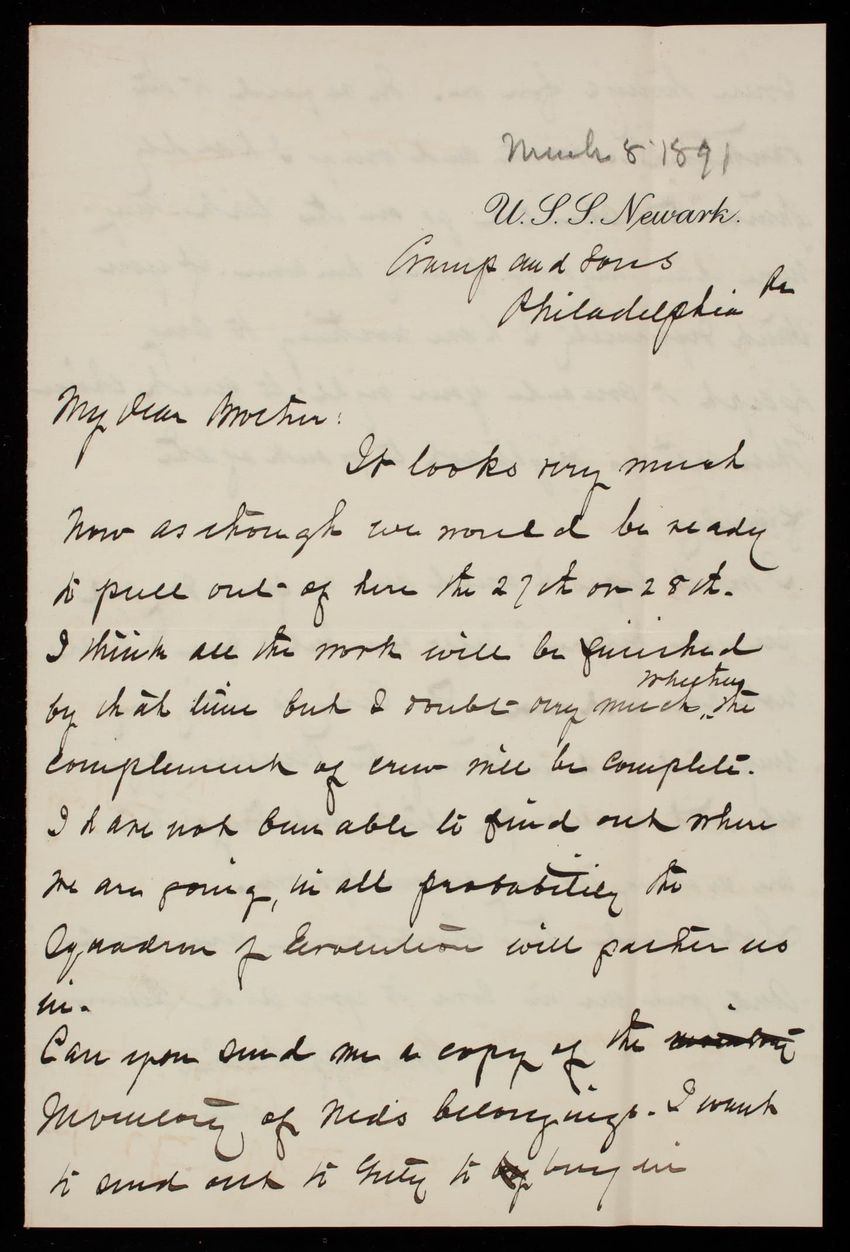 March 8 1891
U.S.S. Newark.
Cramp and Sons
Philadelphia Pa
My dear Brother:
It looks very much
now as though we would be ready
to pull out of here the 27th or 28th.
I think all the work will be finished
whether
by that time but I doubt very much " the
complement of crew will be complete.
I have not been able to find out where
we are going, in all probability the
Squadron of Evolution will gather us
in.
Can you send me a copy of the
Inventory of Ned's belongings. I want
to send out to to buy in